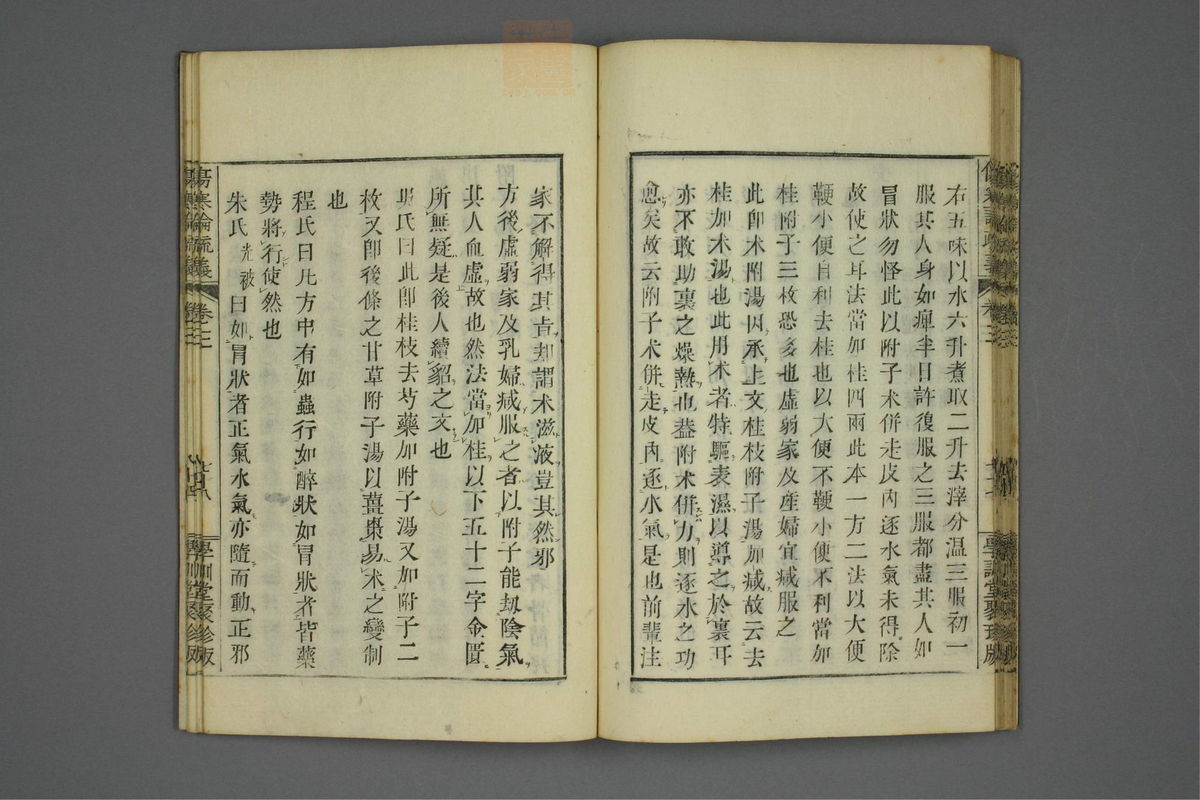 右五味以水六升煮取二升去滓分温三服初一
服其人身如痺半日許復服之三服都盡其人如
冒狀勿怪此以附子朮併走皮內逐水氣未得除
故使之耳法當加桂四兩此本一方二法以大便
鞕小便自利去桂也以大便不鞕小便不利當加
桂附子三枚恐多也虛弱家及產婦宜減服之
此即朮附湯因承上文桂枝附子湯加減故云去
桂加朮湯也此用朮者特驅表濕以導之於裏耳
亦不敢助裏之燥熱也蓋附朮併力則逐水之功
愈矣故云附子朮併走皮內逐水氣是也前輩注
家不解得其旨却謂朮滋液豈其然邪
方後虛弱家及乳婦減服之者以附子能劫陰氣
其人血虛故也然法當加桂以下五十二字金匱
所無疑是後人續貂之文也
吳氏曰此即桂枝去芍藥加附子湯又加附子二
枚又即後條之甘草附子湯以薑棗易朮之變制
也
程氏曰凡方中有如蟲行如醉狀如冒狀者皆藥
勢將行使然也
朱氏光被曰如冒狀者正氣水氣亦隨而動正邪
傷寒論疏義
卷三
學訓堂聚珍版